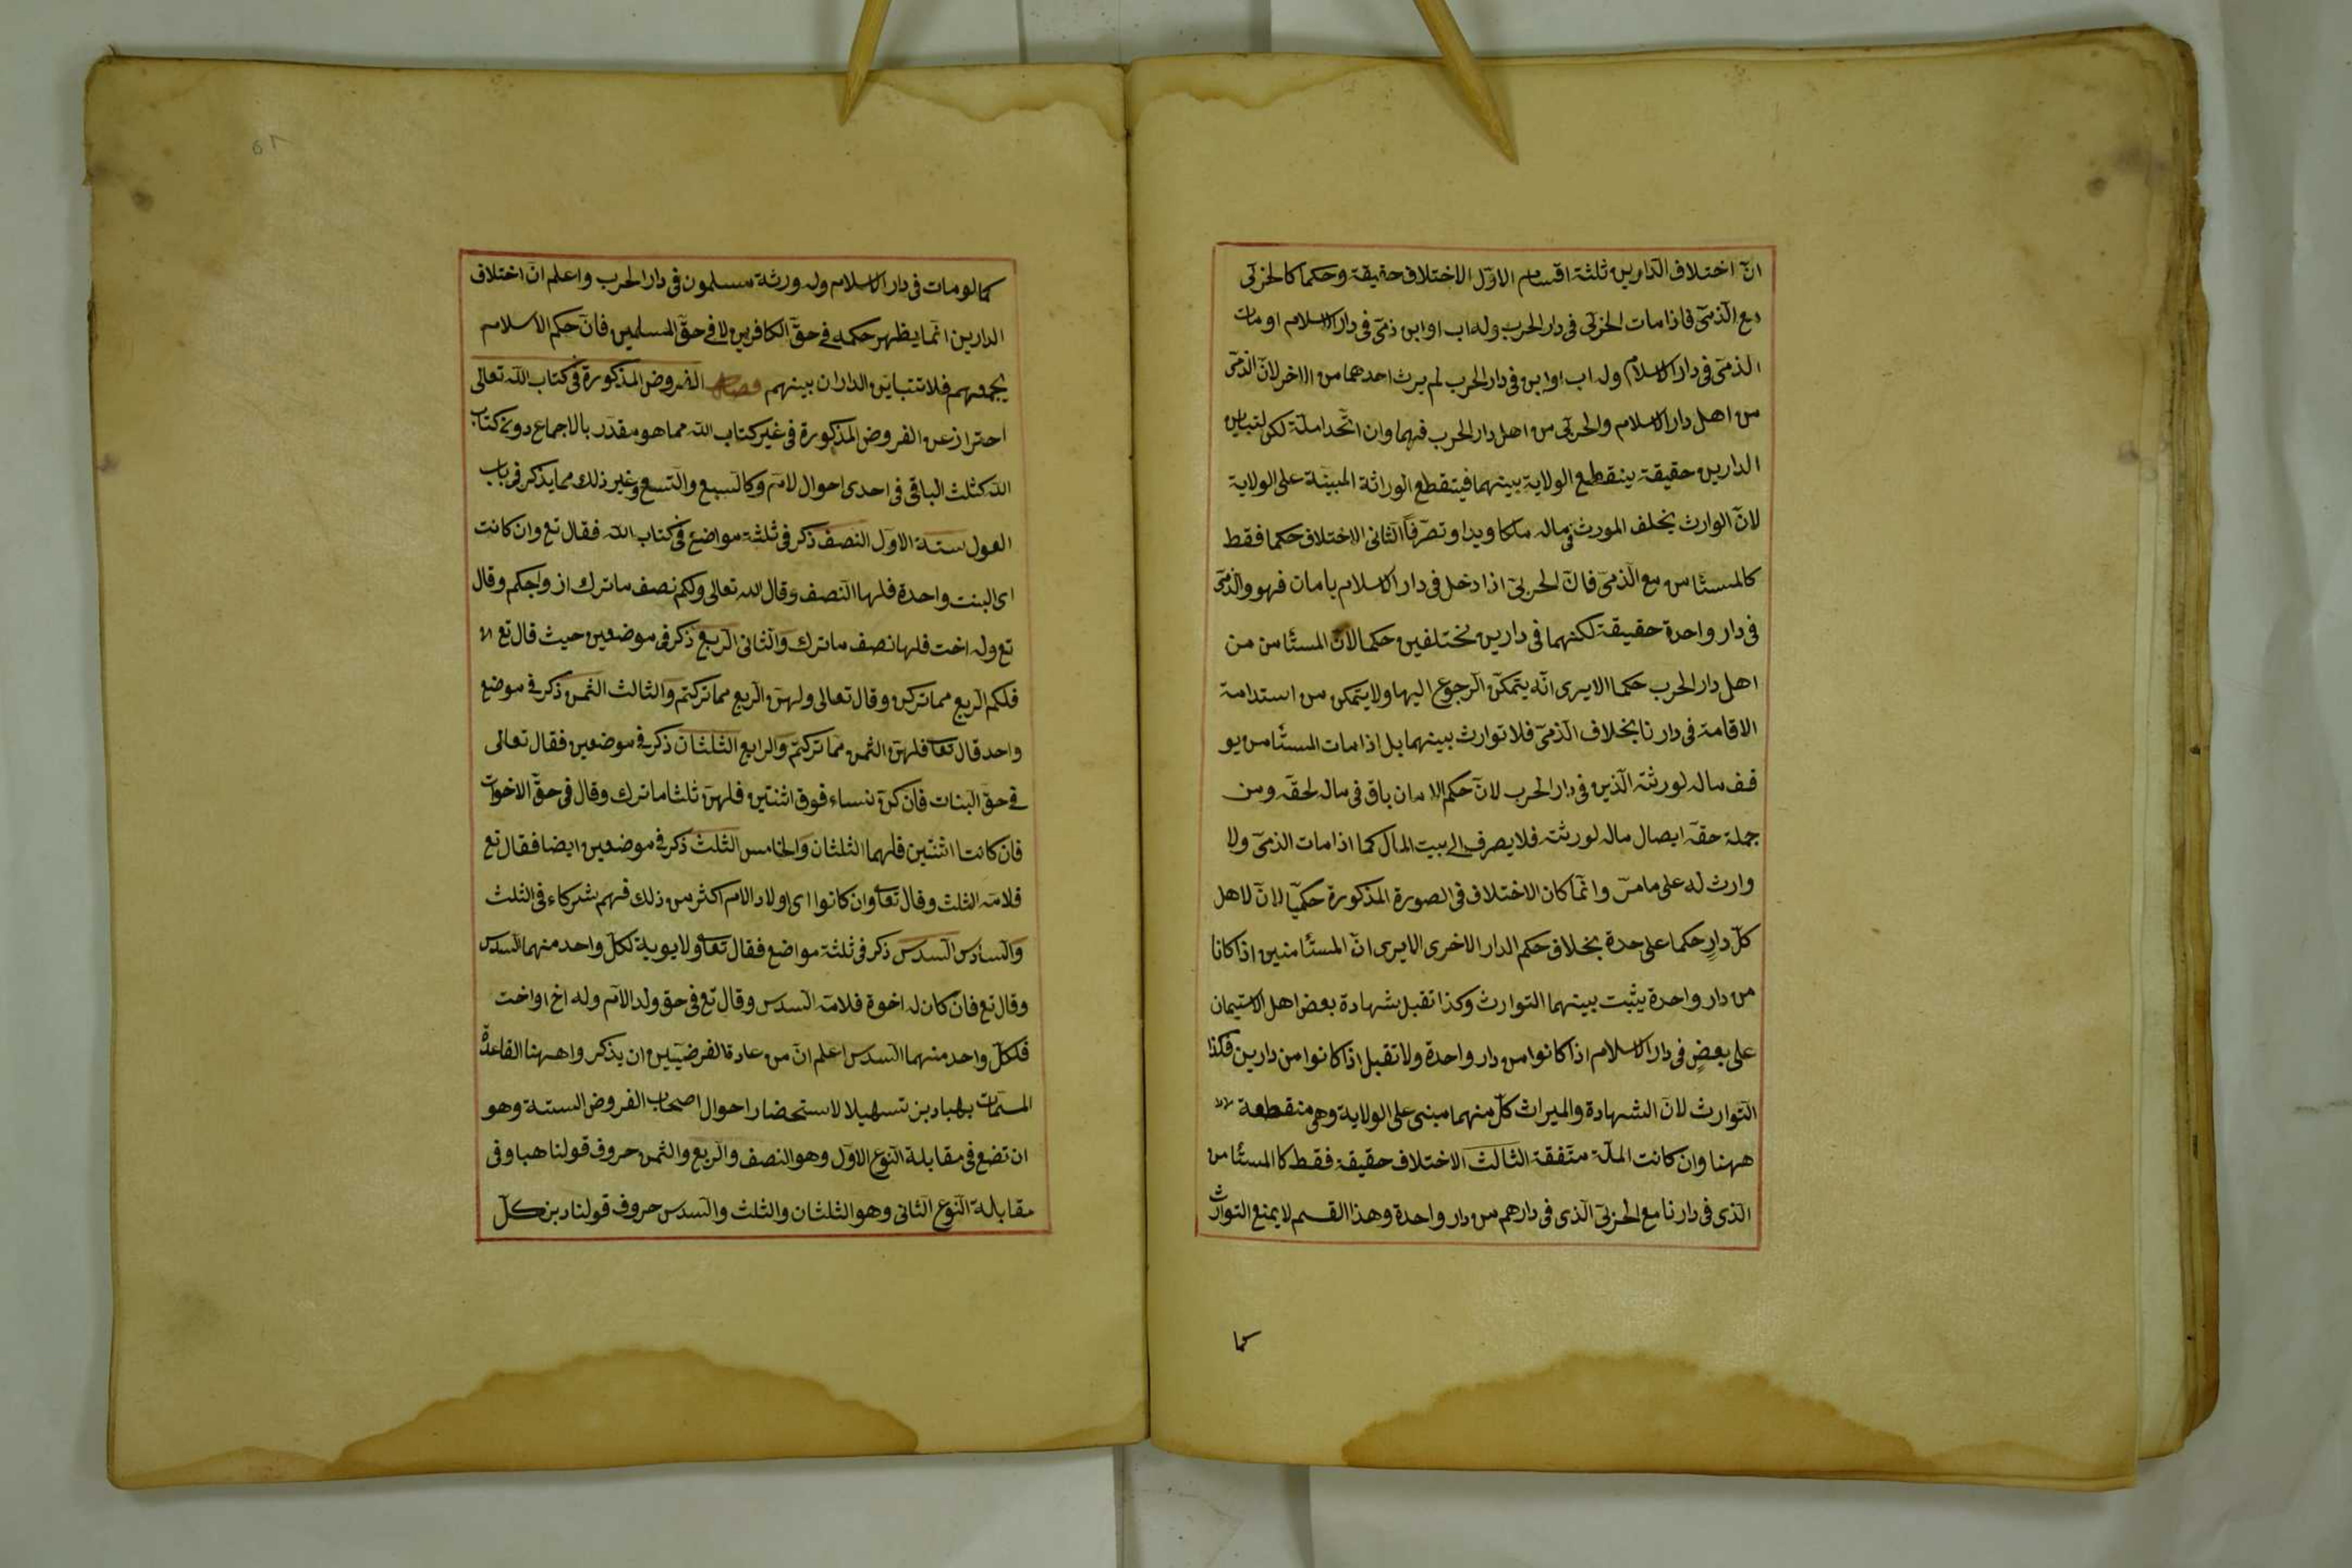 انّ اختلاف الدّارين ثلثة اقسام الاوّل الاختلاف حقيقة وحكما كالحربى
مع الذّمىّ فاذا مات الحربى فى دار الحرب وله اب او ابن ذمىّ فى دار الاسلام او مات
الذمىّ فى دار الاسلام وله اب او ابن فى دار الحرب لم يرث احدهما من الاخر لانّ الذمىّ
من اهل دار الاسلام والحربى من اهل دار الحرب فهما وان اتّحدا ملّة لكن لتباين
الدارين حقيقة ينقطع الولاية بينهما فينقطع الوراثة المبيّنة على الولاية
لانّ الوارث يخلف المورث فى ماله ملكا ويدا وتصرّفا الثانى الاختلاف حكما فقط
كالمستأمن مع الذّمىّ فانّ الحربىّ اذا دخل فى دار الاسلام بامان فهو والذمىّ
فى دار واحدة حقيقة لكنهما فى دارين مختلفين حكما لانّ المستأمن من
اهل دار الحرب حكما الا يرى انّه يتمكّن الرجوع اليها ولا يتمكن من استدامة
الاقامة فى دارنا بخلاف الذمىّ فلا توارث بينهما بل اذا مات المستأمن يو
قف ماله لورثته الّذين فى دار الحرب لانّ حكم الامان باق فى ماله لحقّه ومن
جملة حقّه ايصال ماله لورثته فلا يصرف الى بيت المال كما اذا مات الذمىّ ولا
وارث له على ما مرّ وانّما كان الاختلاف فى الصورة المذكورة حكميّا لانّ لاهل
كلّ دارٍ حكما على حدة بخلاف حكم الدار الاخرى الا يرى انّ المستأمنين اذا كانا
من دار واحدة يثبت بينهما التوارث وكذا تقبل شهادة بعض اهل الاستيمان
على بعضٍ فى دار الاسلام اذا كانوا من دار واحدة ولا تقبل اذا كانوا من دارين فكذا
التّوارث لانّ الشهادة والميراث كلّ منهما مبنى على الولاية وهى منقطعة
ههنا وان كانت الملّة متّفقة الثالث الاختلاف حقيقة فقط كالمستأمن
الّذى فى دارنا مع الحربىّ الّذى فى دارهم من دار واحدة وهذا القسم لا يمنع التوارث
كما
كما لو مات فى دار الاسلام وله ورثة مسلمون فى دار الحرب واعلم انّ اختلاف
الدارين انّما يظهر حكمه فى حقّ الكافرين لا فى حقّ المسلمين فانّ حكم الاسلام
يجمعهم فلا تتباين الداران بينهم فصل الفروض المذكورة فى كتاب الله تعالى
احتراز عن الفروض المذكورة فى غير كتاب الله مما هو مقدّر بالاجماع دون كتاب
الله كثلث الباقى فى احدى احوال لامّ وكالسبع والتّسع وغير ذلك مما يذكر فى باب
العول ستة الاوّل النصف ذكر فى ثلثة مواضع فى كتاب الله فقال تع وان كانت
اى البنت واحدة فلها النّصف وقال الله تعالى ولكم نصف ما ترك ازواجكم وقال
تع وله اخت فلها نصف ما ترك والثّانى الرّبع ذكر فى موضعين حيث قال تع
فلكم الرّبع مما تركن وقال تعالى ولهنّ الرّبع مما تركتم والثالث الثّمن ذكر فى موضع
واحد قال تعا فلهنّ الثمن ممّا تركتم والرابع الثلثان ذكر فى موضعين فقال تعالى
فى حقّ البنات فان كنّ نساء فوق اثنتين فلهنّ ثلثا ما ترك وقال فى حقّ الاخوات
فان كانتا اثنتين فلهما الثلثان والخامس الثّلث ذكر فى موضعين ايضا فقال تع
فلامّه الثلث وقال تعا وان كانوا اى اولاد الام اكثر من ذلك فهم شركاء فى الثلث
والسّادس السّدس ذكر فى ثلثة مواضع فقال تعا ولابويه لكلّ واحد منهما السّدس
وقال تع فان كان له اخوة فلامّه السّدس وقال تع فى حق ولد الامّ وله اخ او اخت
فلكلّ واحد منهما السّدس اعلم انّ من عادة الفرضيّين ان يذكروا ههنا القاعدة
المسمّات بهبادبز تسهيلا لاستحضار احوال اصحاب الفروض الستة وهو
ان تضع فى مقابلة النّوع الاوّل وهو النصف والرّبع والثمن حروف قولنا هبا وفى
مقابلة النّوع الثانى وهو الثلثان والثلث والسّدس حروف قولنا دبز كلّ